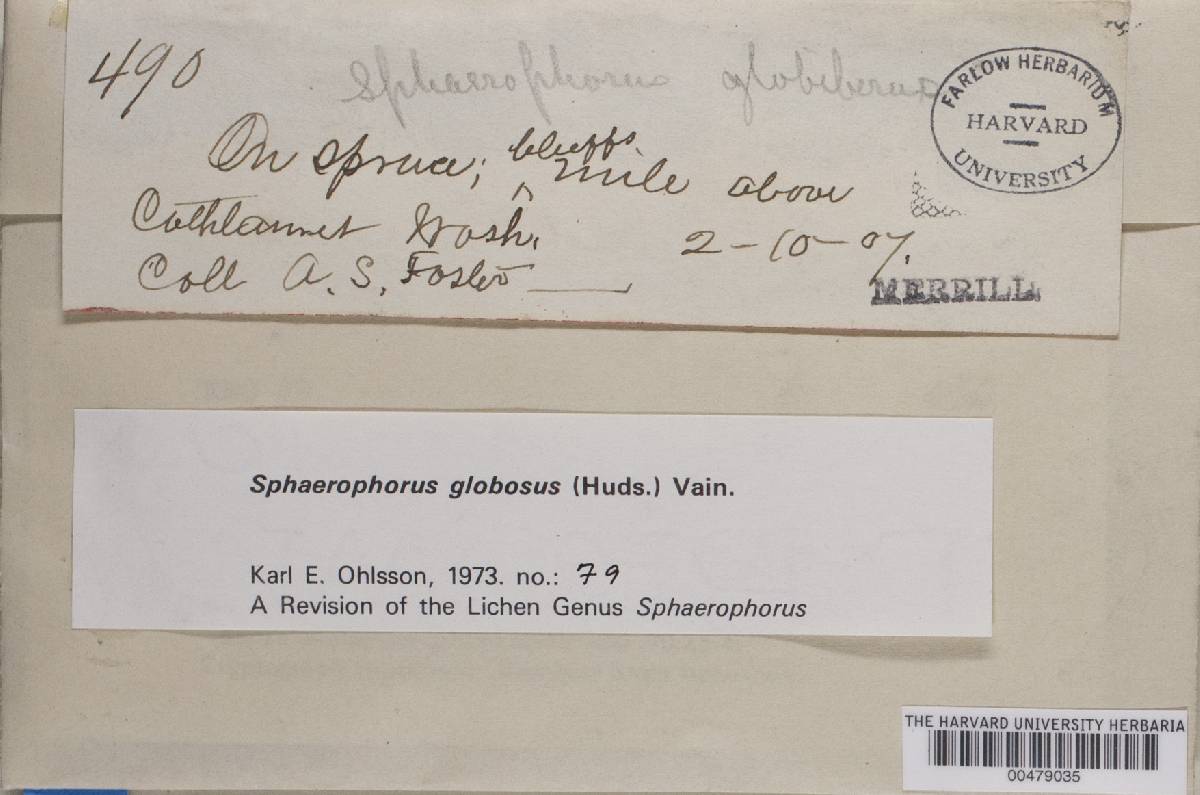 490
Sphaerophorus globiferus
FARLOW HERBARIUM
HARVARD
UNIVERSITY
On spruce; bluffs mile above
Cathlamet Wash. 2-10-07.
Coll A. S. Foster
MERRILL
Sphaerophorus globosus (Huds.) Vain.
Karl E. Ohlsson, 1973. no.: 79
A Revision of the Lichen Genus Sphaerophorus
THE HARVARD UNIVERSITY HERBARIA
00479035